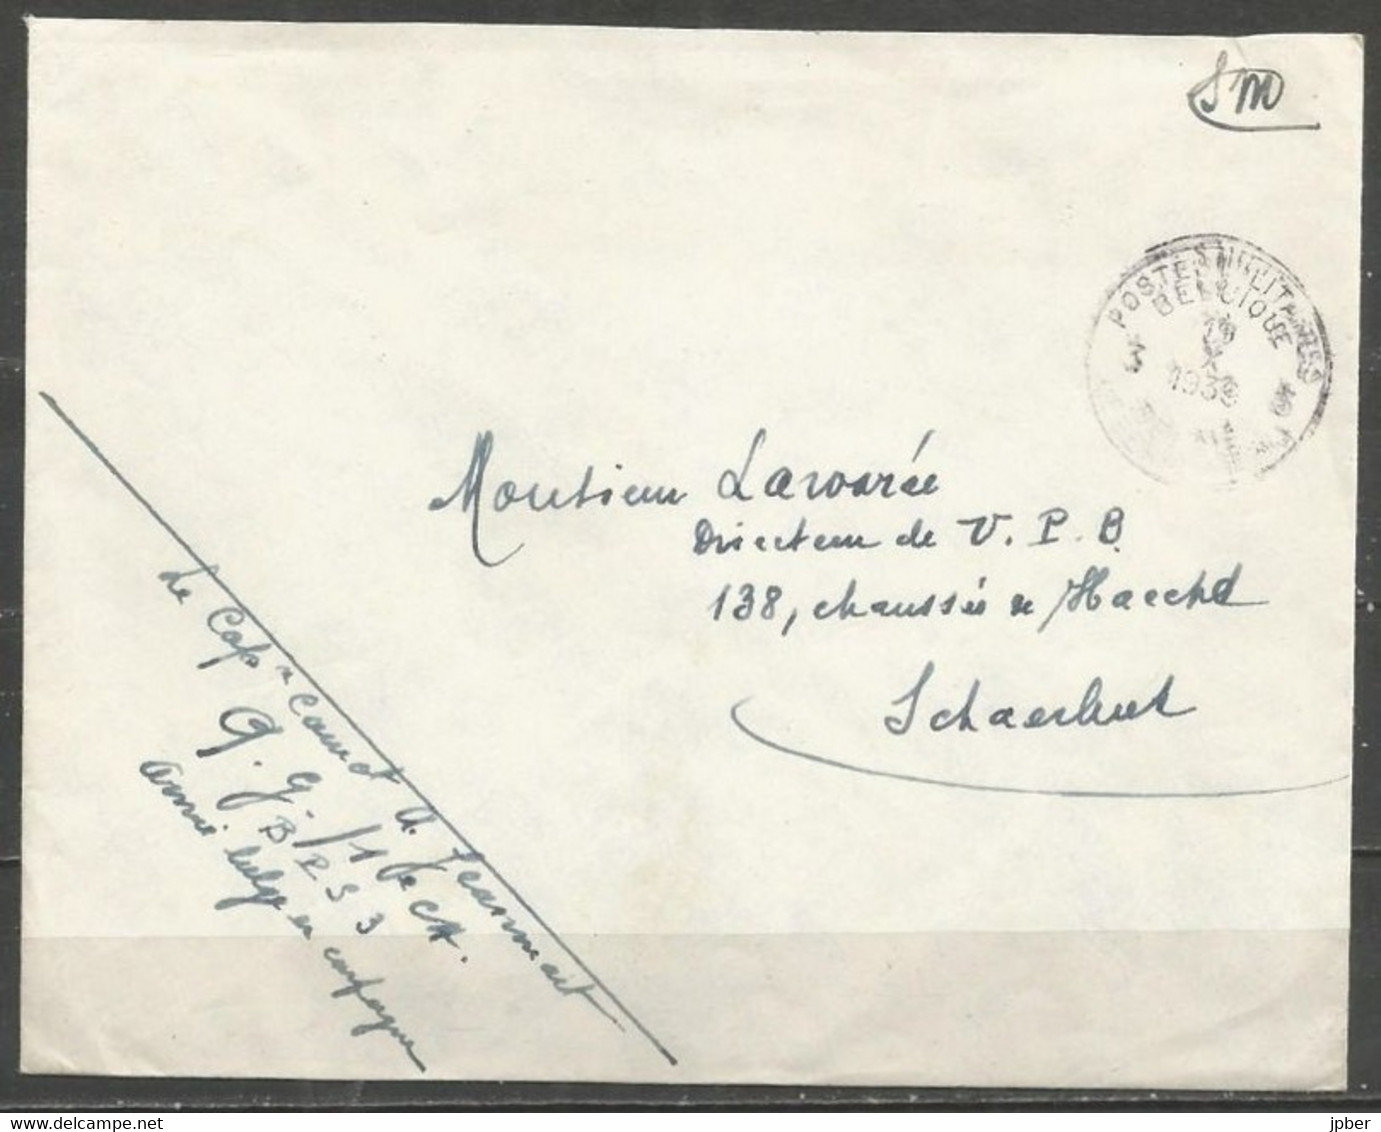 SM
POSTES MILITAIRES
BELGIQUE
3 3
1939
Monsieur Lavorée
Directeur de V. P. B.
138, chaussée de Haecht
Schaerbeek
Le Cap Cdt A. Jeanmart
G. G. / 1 e CA.
B P S 3
armée belge en campagne
delcampe.net
jpber